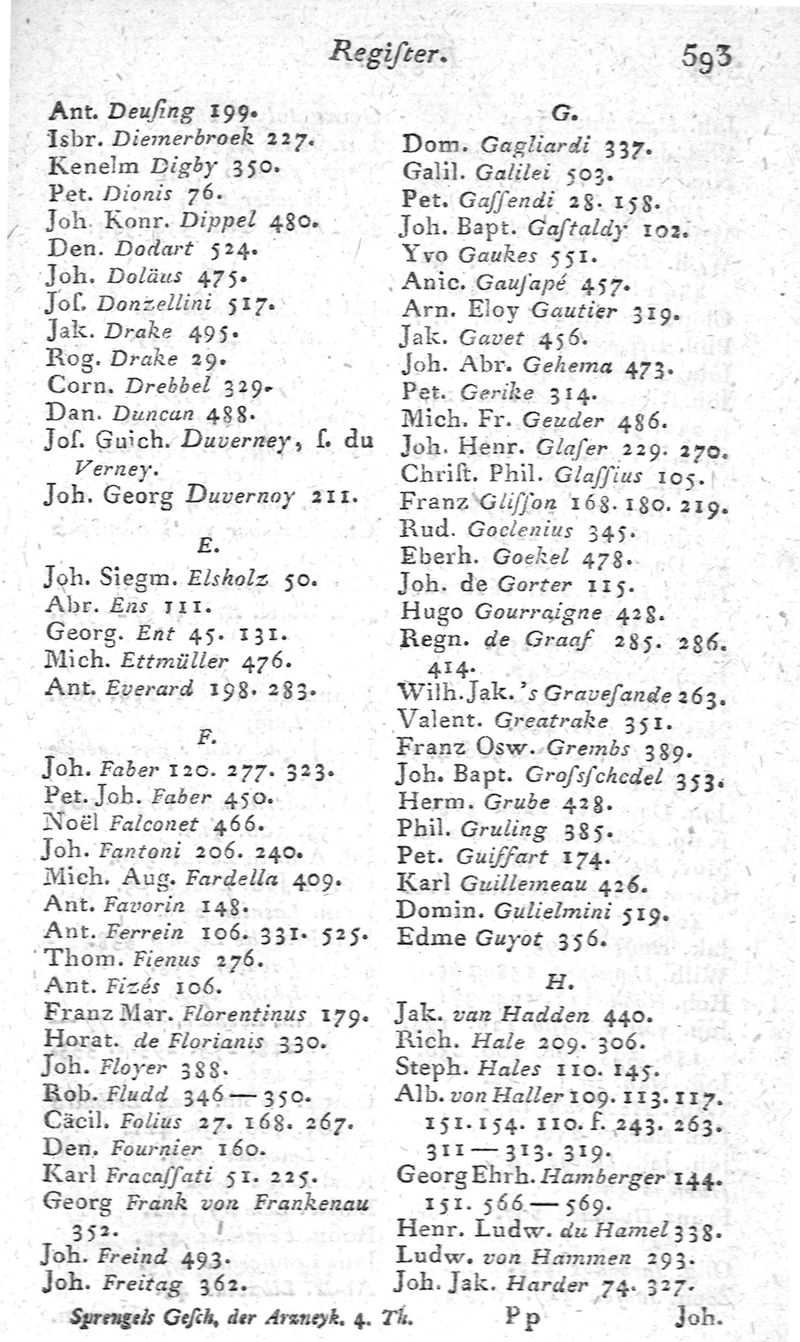 Regiſter. 593
Ant. Deuſing 199.
Isbr. Diemerbroek 227.
Kenelm Digby 350.
Pet. Dionis 76.
Joh. Konr. Dippel 480.
Den. Dodart 524.
Joh. Doläus 475.
Joſ. Donzellini 517.
Jak. Drake 495.
Rog. Drake 29.
Corn. Drebbel 329.
Dan. Duncan 488.
Joſ. Guich. Duverney, ſ. du
Verney.
Joh. Georg Duvernoy 211.
E.
Joh. Siegm. Elsholz 50.
Abr. Ens 111.
Georg. Ent 45. 131.
Mich. Ettmüller 476.
Ant. Everard 198. 283.
F.
Joh. Faber 120. 277. 323.
Pet. Joh. Faber 450.
Noël Falconet 466.
Joh. Fantoni 206. 240.
Mich. Aug. Fardella 409.
Ant. Favorin 148.
Ant. Ferrein 106. 331. 525.
Thom. Fienus 276.
Ant. Fizés 106.
Franz Mar. Florentinus 179.
Horat. de Florianis 330.
Joh. Floyer 388.
Rob. Fludd 346—350.
Cäcil. Folius 27. 168. 267.
Den. Fournier 160.
Karl Fracaſſati 51. 225.
Georg Frank von Frankenau
352.
Joh. Freind 493.
Joh. Freitag 362.
G.
Dom. Gagliardi 337.
Galil. Galilei 503.
Pet. Gaſſendi 28. 158.
Joh. Bapt. Gaſtaldy 102.
Yvo Gaukes 551.
Anic. Gauſapé 457.
Arn. Eloy Gautier 319.
Jak. Gavet 456.
Joh. Abr. Gehema 473.
Pet. Gerike 314.
Mich. Fr. Geuder 486.
Joh. Henr. Glaſer 229. 270.
Chriſt. Phil. Glaſſius 105.
Franz Gliſſon 168. 180. 219.
Rud. Goclenius 345.
Eberh. Goekel 478.
Joh. de Gorter 115.
Hugo Gourraigne 428.
Regn. de Graaf 285. 286.
414.
Wilh. Jak. 's Graveſande 263.
Valent. Greatrake 351.
Franz Osw. Grembs 389.
Joh. Bapt. Groſsſchedel 353.
Herm. Grube 428.
Phil. Gruling 385.
Pet. Guiffart 174.
Karl Guillemeau 426.
Domin. Gulielmini 519.
Edme Guyot 356.
H.
Jak. van Hadden 440.
Rich. Hale 209. 306.
Steph. Hales 110. 145.
Alb. von Haller 109. 113. 117.
151. 154. 110. f. 243. 263.
311—313. 319.
Georg Ehrh. Hamberger 144.
151. 566—569.
Henr. Ludw. du Hamel 338.
Ludw. von Hammen 293.
Joh. Jak. Harder 74. 327.
Sprengels Geſch. der Arzneyk. 4. Th. Pp Joh.